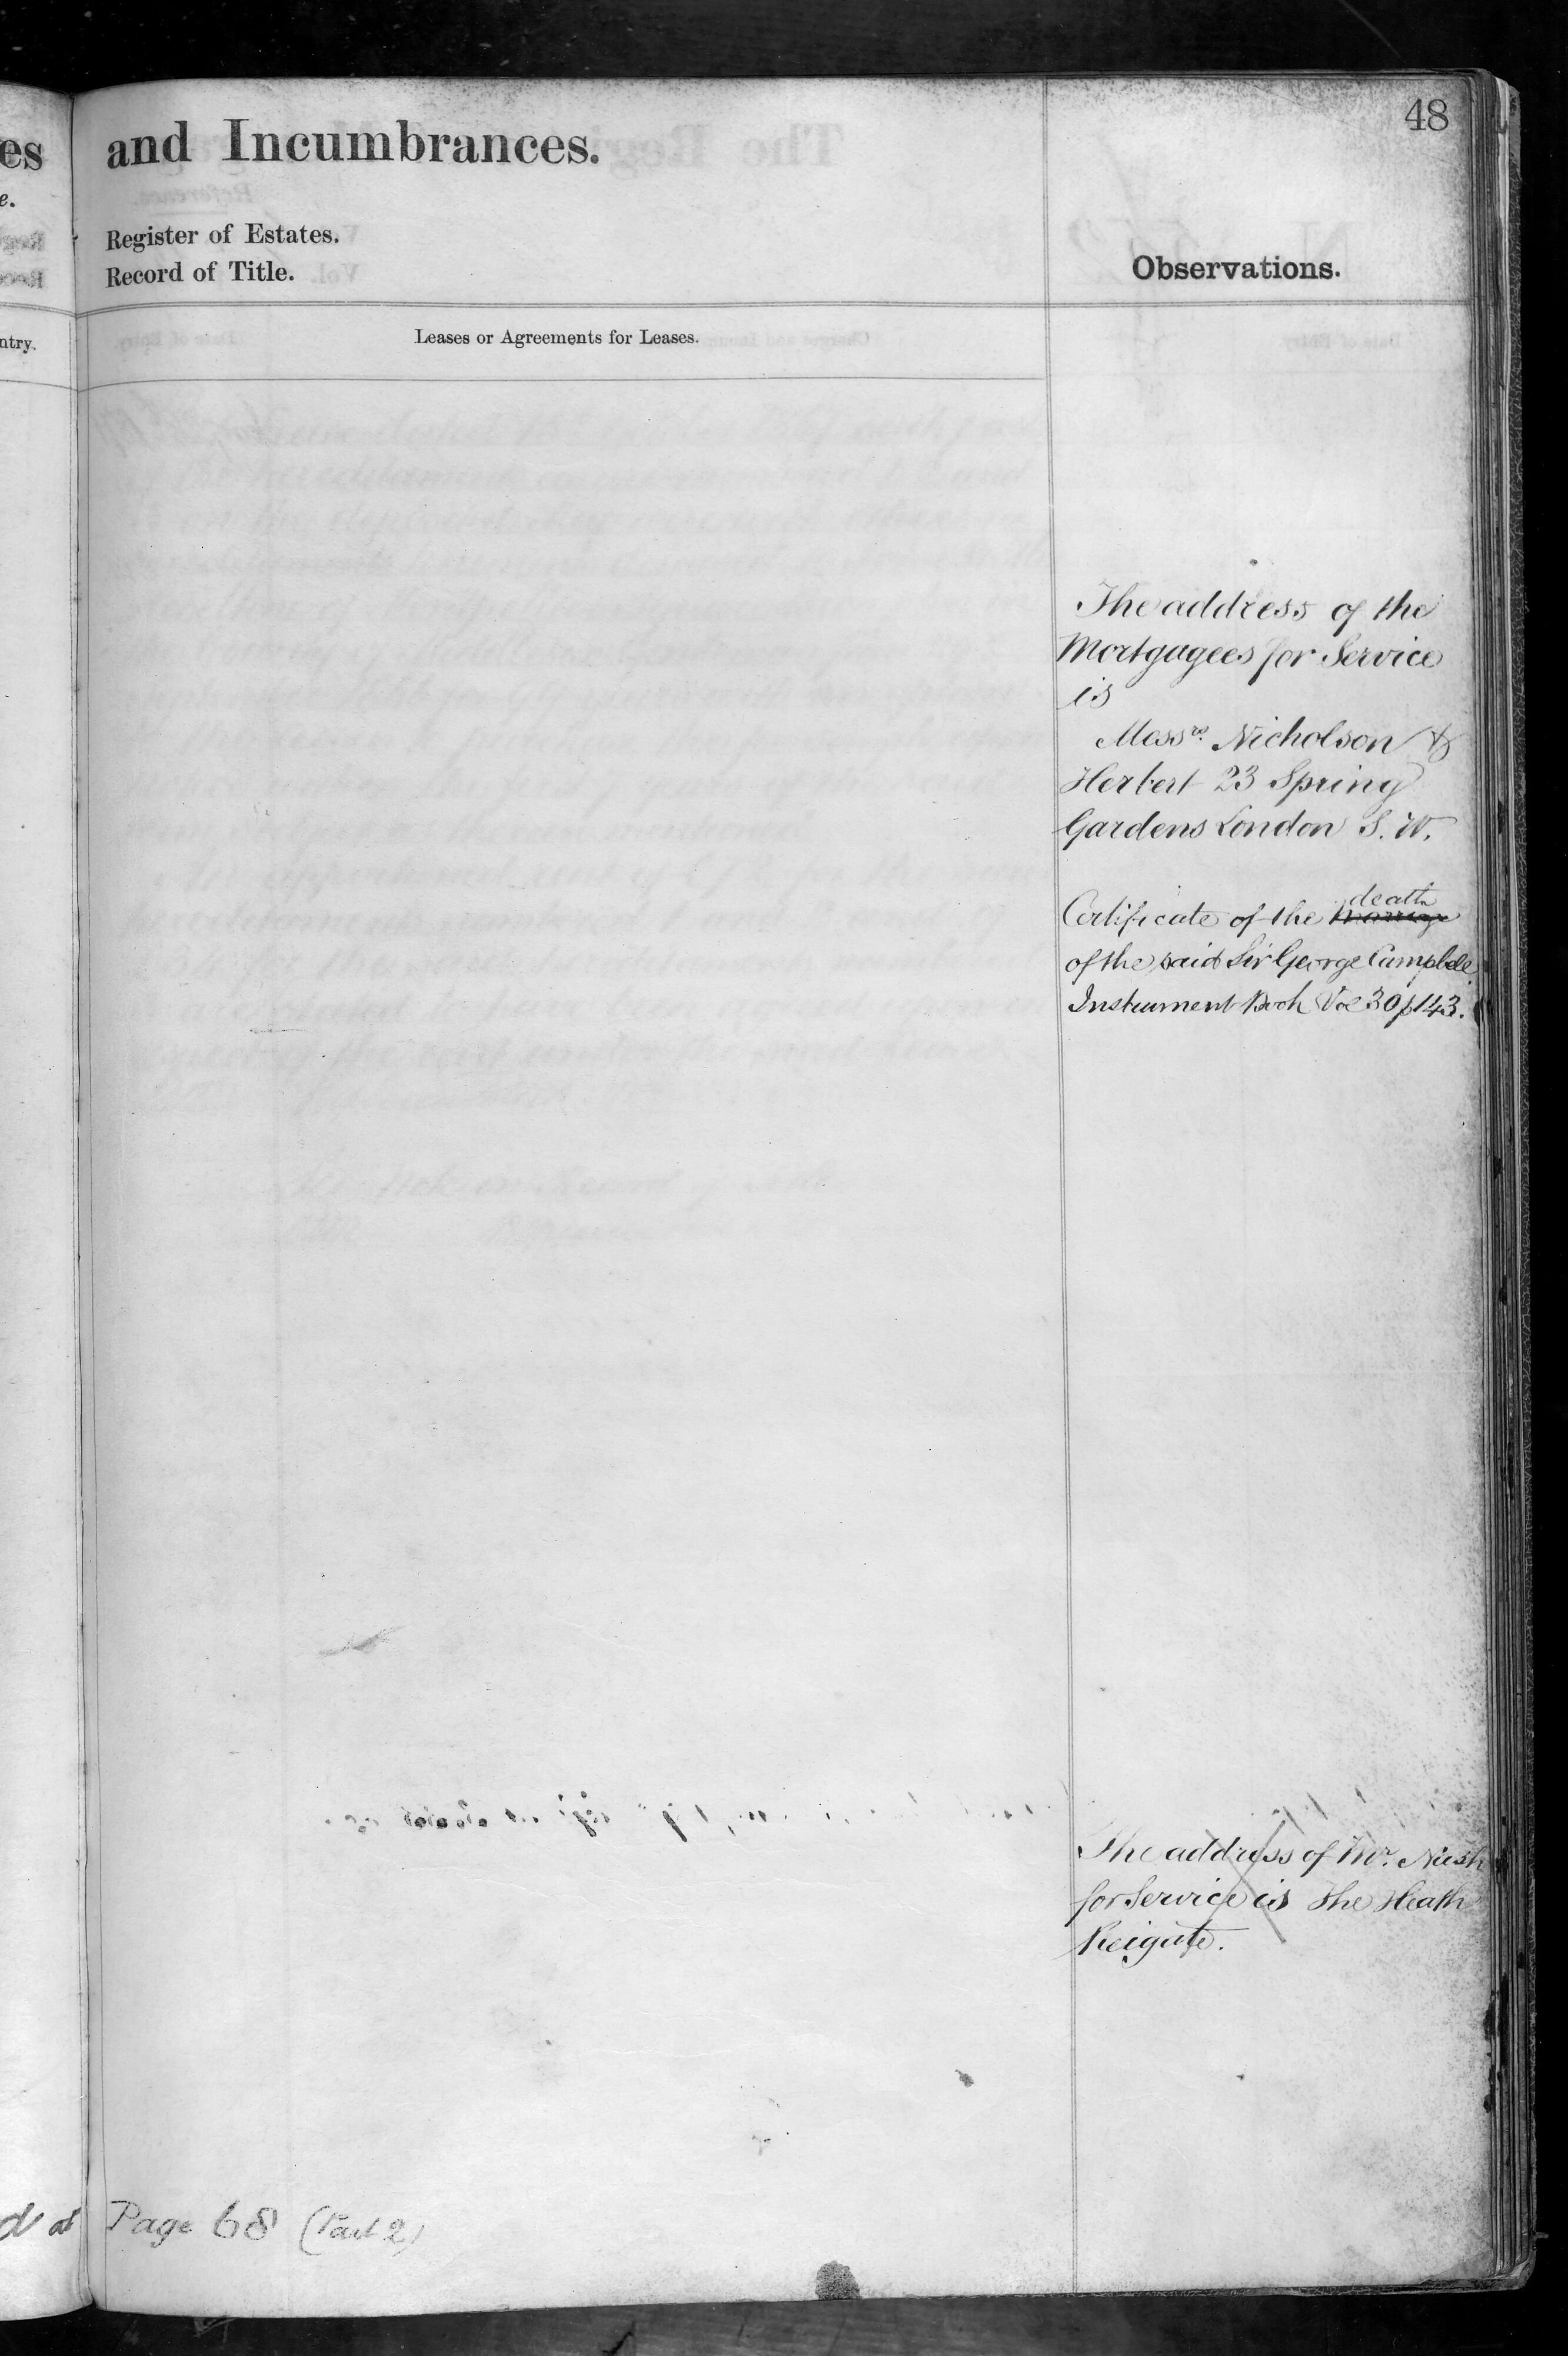 48
es and Incumbrances.
e.
Register of Estates.
Record of Title.
Observations.
ntry.
Leases or Agreements for Leases.
The address of the
Mortgagees for Service
is
Messrs. Nicholson &
Herbert 23 Spring
Gardens London S. W.
death
Certificate of the marriage
of the said Sir George Campbell
Instrument Book Vol 30 p 143.
The address of Mr. Nash
for Service is The Heath
Reigate.
d at Page 68 (Part 2)